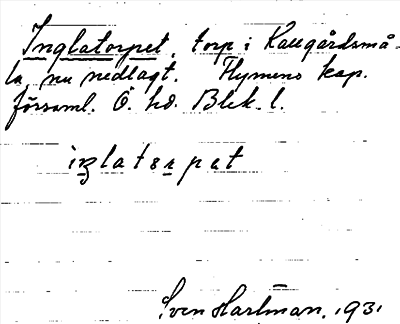 Inglatorpet, torp i Kallgårdsmå-
la, nu nedlagt. Flymens kap.
församl. Ö. hd. Blek. l.
iŋlatɛrpɛt
Sven Hartman. 1931